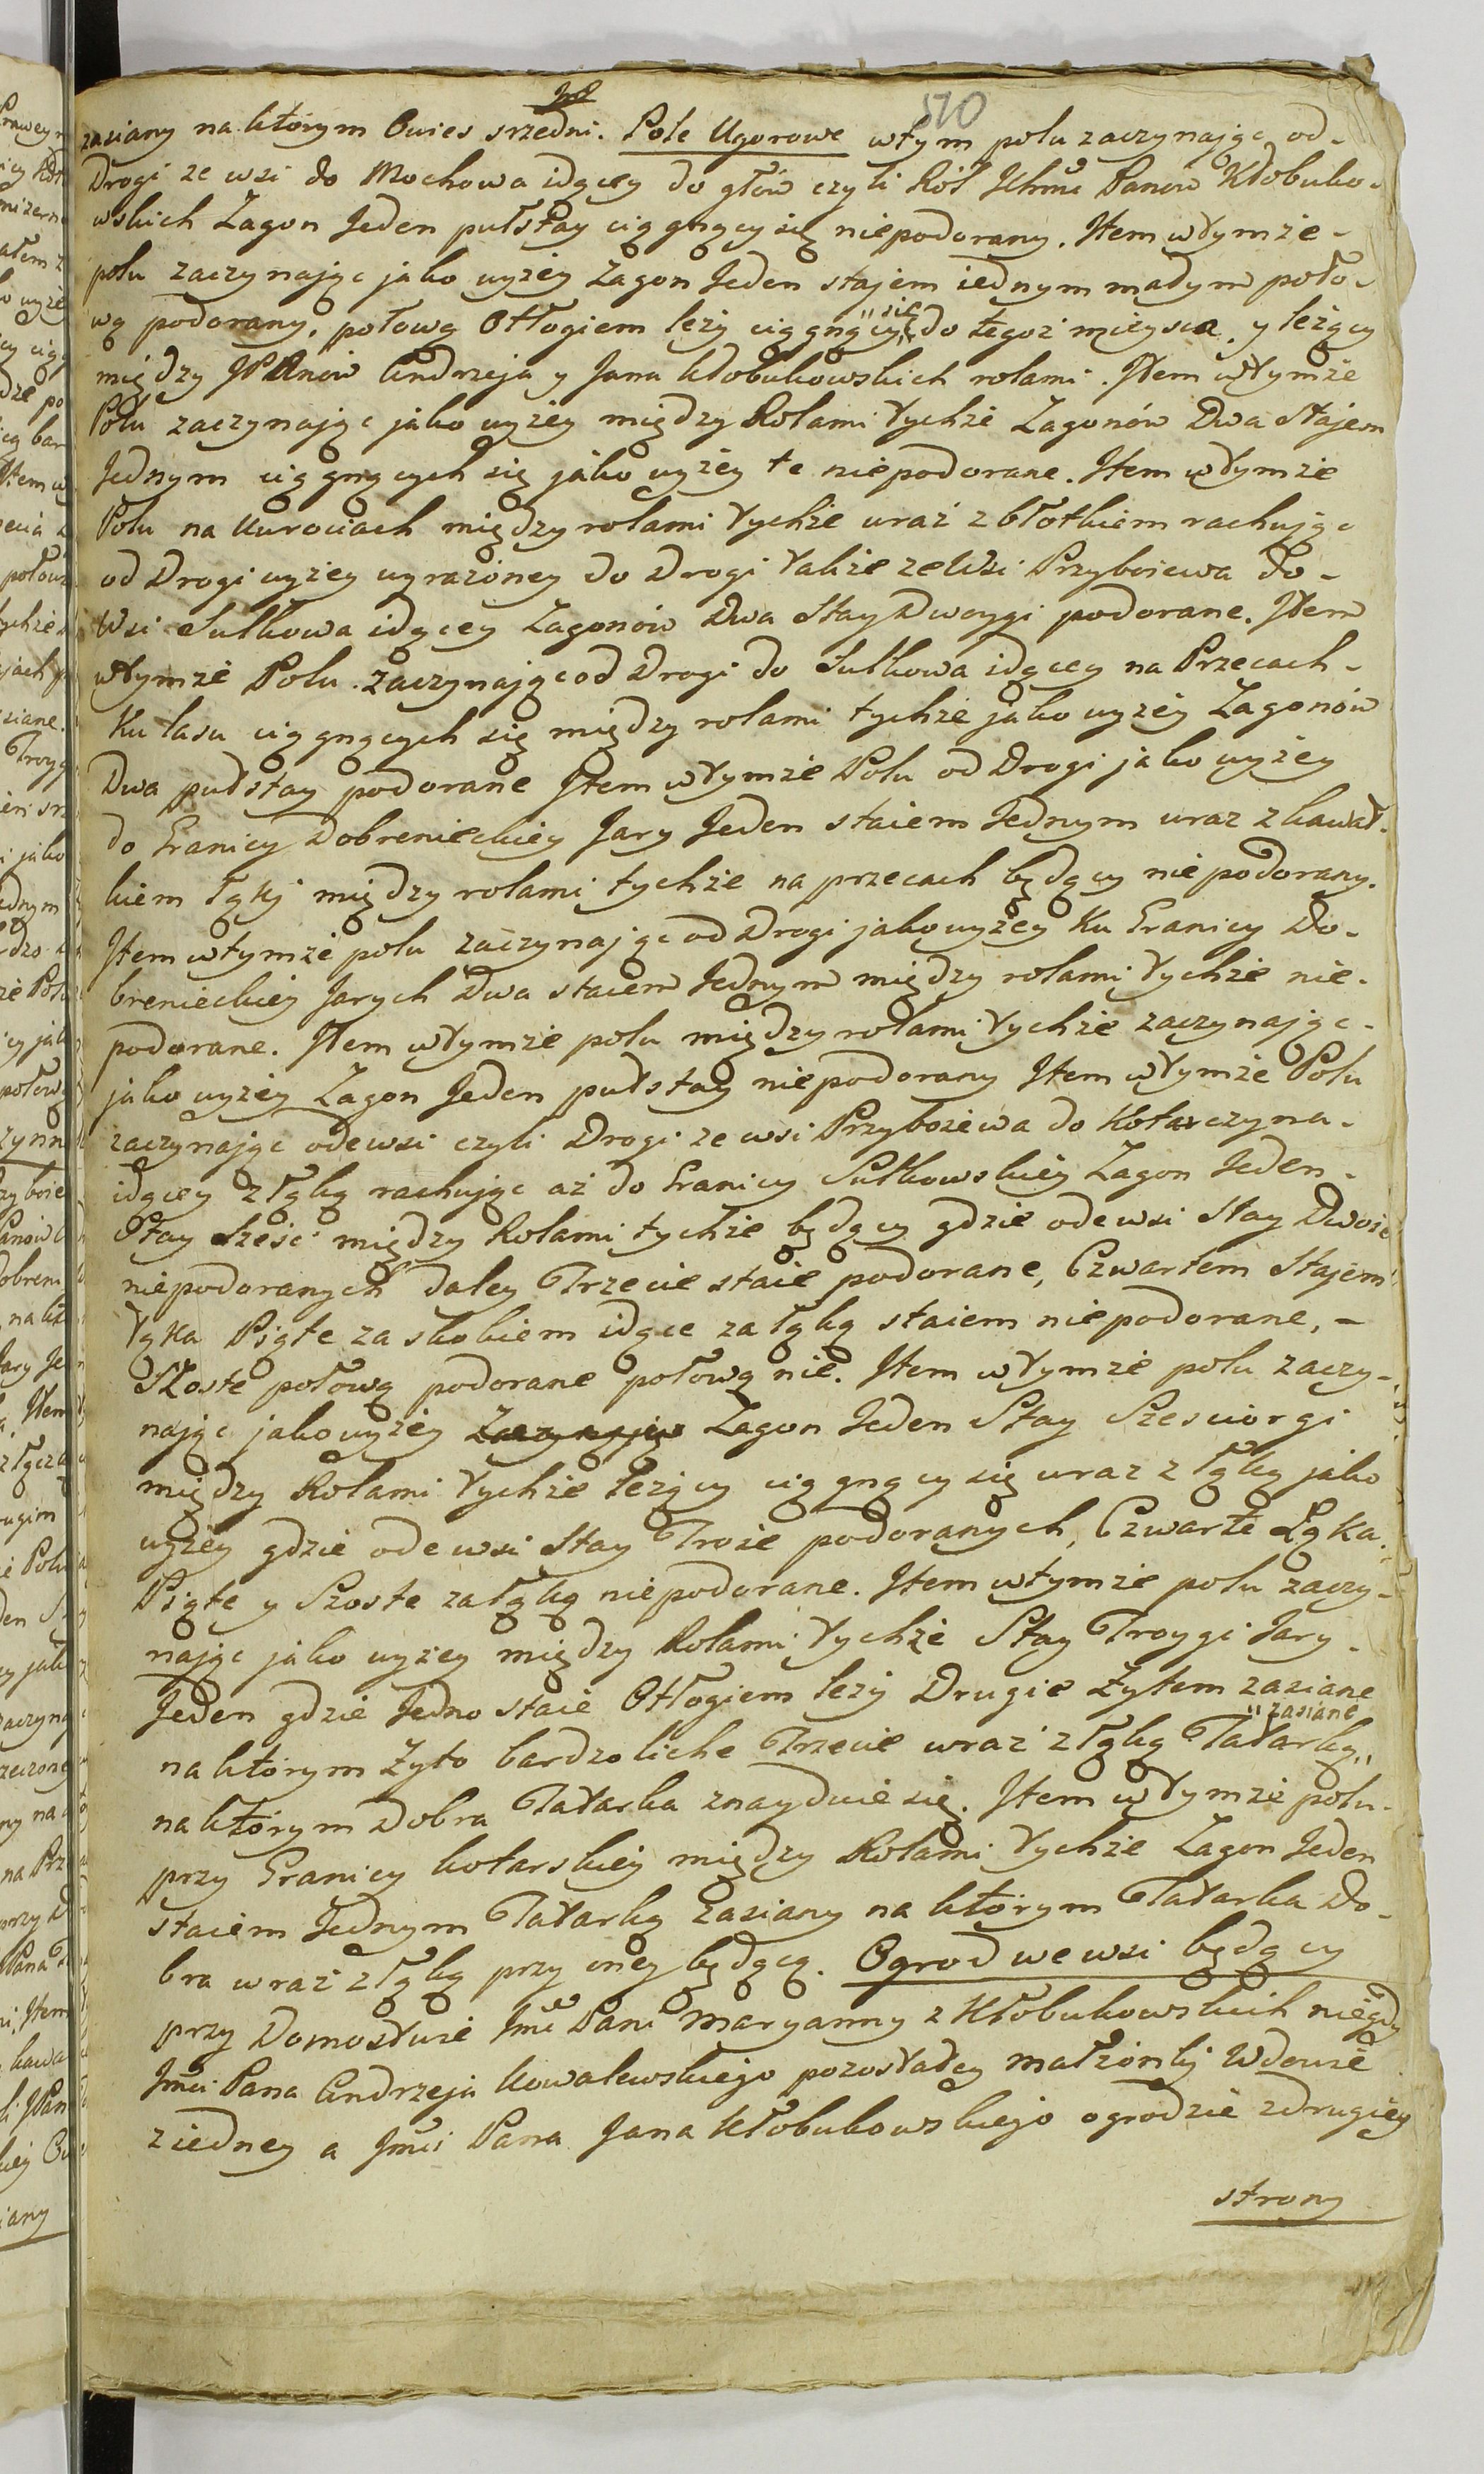 510
zasiany na którym Owies srzedni. Pole Ugorowe wtym polu zaczynaiąc od-
Drogi ze wsi do Mochowa idącey do głów czyli Ról Ichmć Panów Kłobuko-
wskich Zagon Jeden pułstay ciągnący się niepodorany. Item wtymże-
polu zaczynając jako wyżey Zagon Jeden stajem iednym małym poło-
wą podorany, połową Odłogiem leży ciągnący "się" do tegoż mieysca, y leżący
między JPPanów Andrzeja y Jana Kłobukowskich rolami. Item wtymże
Polu zaczynając jako wyżey między Rolami tychże Zagonów Dwa Stajem
Jednym ciągnących się jako wyżey te niepodorane. Item wtymże
Polu na Kurociach między rolami tychże wraz z błotkiem rachując
od Drogi wyżey wyrażoney do Drogi także ze Wsi Przybojewa do-
Wsi Sulkowa idącey Zagonów Dwa Stay Dwoygi podorane. Item
wtymże Polu zaczynając od Drogi do Sulkowa idącey na Przecach-
Ku lasu ciągnących się między rolami tychże jako wyżey Zagonów
Dwa pułstay podorane Item wtymże Polu od Drogi jako wyżey
do Granicy Dobrenieckiey Jary Jeden staiem Jednym wraz z kawał-
kiem łąki między rolami tychże na przecach będący niepodorany.
Item wtymże polu zaczynając od Drogi jako wyżey Ku Granicy Do-
brenieckiey Jarych Dwa staiem Jednym między rolami tychże nie-
podorane. Item wtymże polu między rolami tychże zaczynając-
jako wyżey Zagon Jeden pułstay niepodorany Item wtymże Polu
zaczynając odewsi czyli Drogi ze wsi Przybojewa do Kotarczyna-
idącey z łąką rachując aż do Granicy Sulkowskiey Zagon Jeden-
Stay Sześć między Rolami tychże będący gdzie odewsi Stay Dwoie
niepodoranych daley Trzecie staie podorane, Czwartem Stajem
łąka Piąte za skokiem idące załąką staiem niepodorane, -
Szoste połową podorane połową nie. Item wtymże polu zaczy-
nając jako wyżey Zagon Jeden Stay Sześciorgi
między Rolami tychże leżący ciągnący się wraz z łąką jako
wyżey gdzie odewsi Stay Troie podoranych, Czwarte Łąka.
Piąte y Szoste załąką niepodorane. Item wtymże polu zaczy-
nając jako wyżey między Rolami tychże Stay Troygi Jary-
Jeden gdzie Jedno staie Odłogiem leży Drugie Żytem zasiane
na którym Żyto bardzo liche Trzecie wraz z łąką Tatarką "zasiane"
na którym Dobra Tatarka znayduie się. Item wtymże polu-
przy Granicy kotarskiey między Rolami tychże Zagon Jeden
staiem Jednym Tatarką zasiany na którym Tatarka Do-
bra wraz z łąką przy oney będącą. Ogrod we wsi będący
przy Domostwie Jmć Pani Maryanny z Kłobukowskich niegdy
Jmci Pana Andrzeja Kowalewskiego pozostałey małżonki Wdowie
ziedney a Jmci Pana Jana Kłobukowskiego ogrodzie zdrugiey
strony